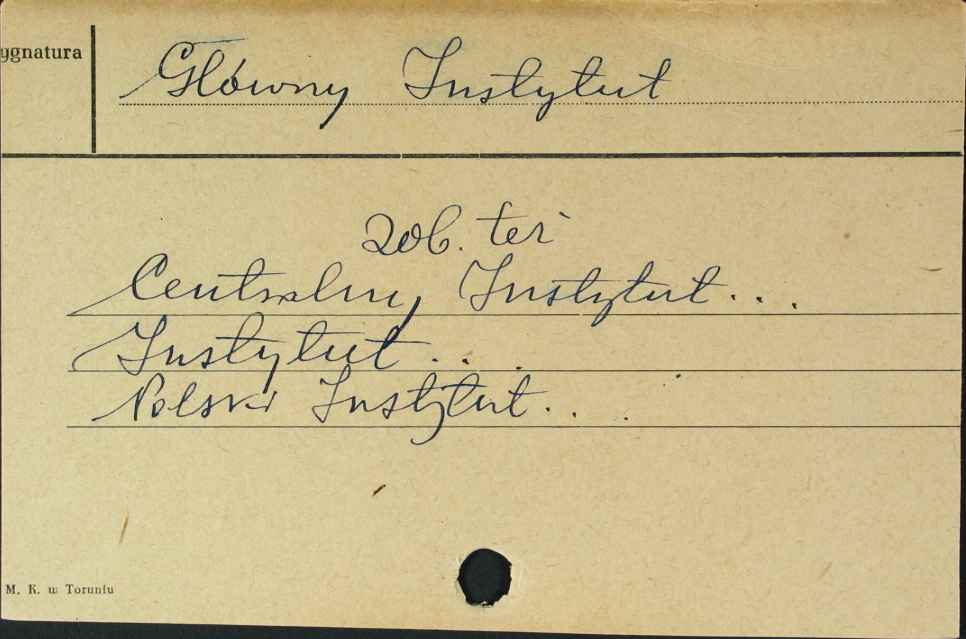 ygnatura
Główny Instytut
zob. też
Centralny Instytut...
Instytut...
Polski Instytut...
M. K. w Toruniu